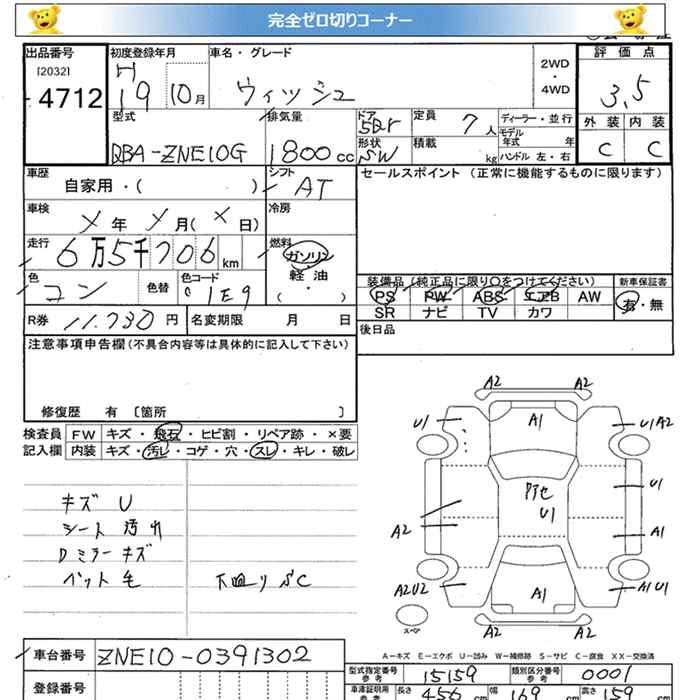 完全ゼロ切りコーナー
出品番号 初度登録年月 車名・グレード 2WD ・ 4WD 評価点
[2032]
4712 H19 10月 ウィッシュ 3,5
型式 排気量 ドア 5Dr 定員 7人 ディーラー・並行 外装 内装
モデル年式 年
DBA-ZNE10G 1800cc 形状 SW 積載 kg ハンドル 左・右 C C
車歴 シフト セールスポイント (正常に機能するものに限ります)
自家用・( ) AT
車検 冷房
メ年 メ月(メ日)
走行 燃料
6万5千706km ガソリン
軽油
(・)
色 色替 色コード 装備品 (純正品に限り〇をつけてください) 新車保証書
コン 1E9 PS PW ABS エアB AW 有・無
SR ナビ TV カワ
R券 11.730円 名変期限 月 日 後日品
注意事項申告欄(不具合内容等は具体的に記入して下さい)
修復歴 有 [箇所 ]
検査員 FW キズ・飛石・ヒビ割・リペア跡・×要
記入欄 内装 キズ・汚レ・コゲ・穴・スレ・キレ・破レ
キズ U
シート 汚れ
Dミラーキズ
ペット毛 下回りSC
A2 A2
U1 A1 U1A2
U1
U1
A2 A1
A2U2 A1 A1U1
スペア
A2 A2
A-キズ E-エクボ U-凹み W-補修跡 S-サビ C-腐食 XX-交換済
車台番号 ZNE10-0391302
型式指定番号 参考 15159 類別区分番号 参考 0001
登録番号
車庫証明用 参考 長さ 456cm 幅 169cm 高さ 159cm